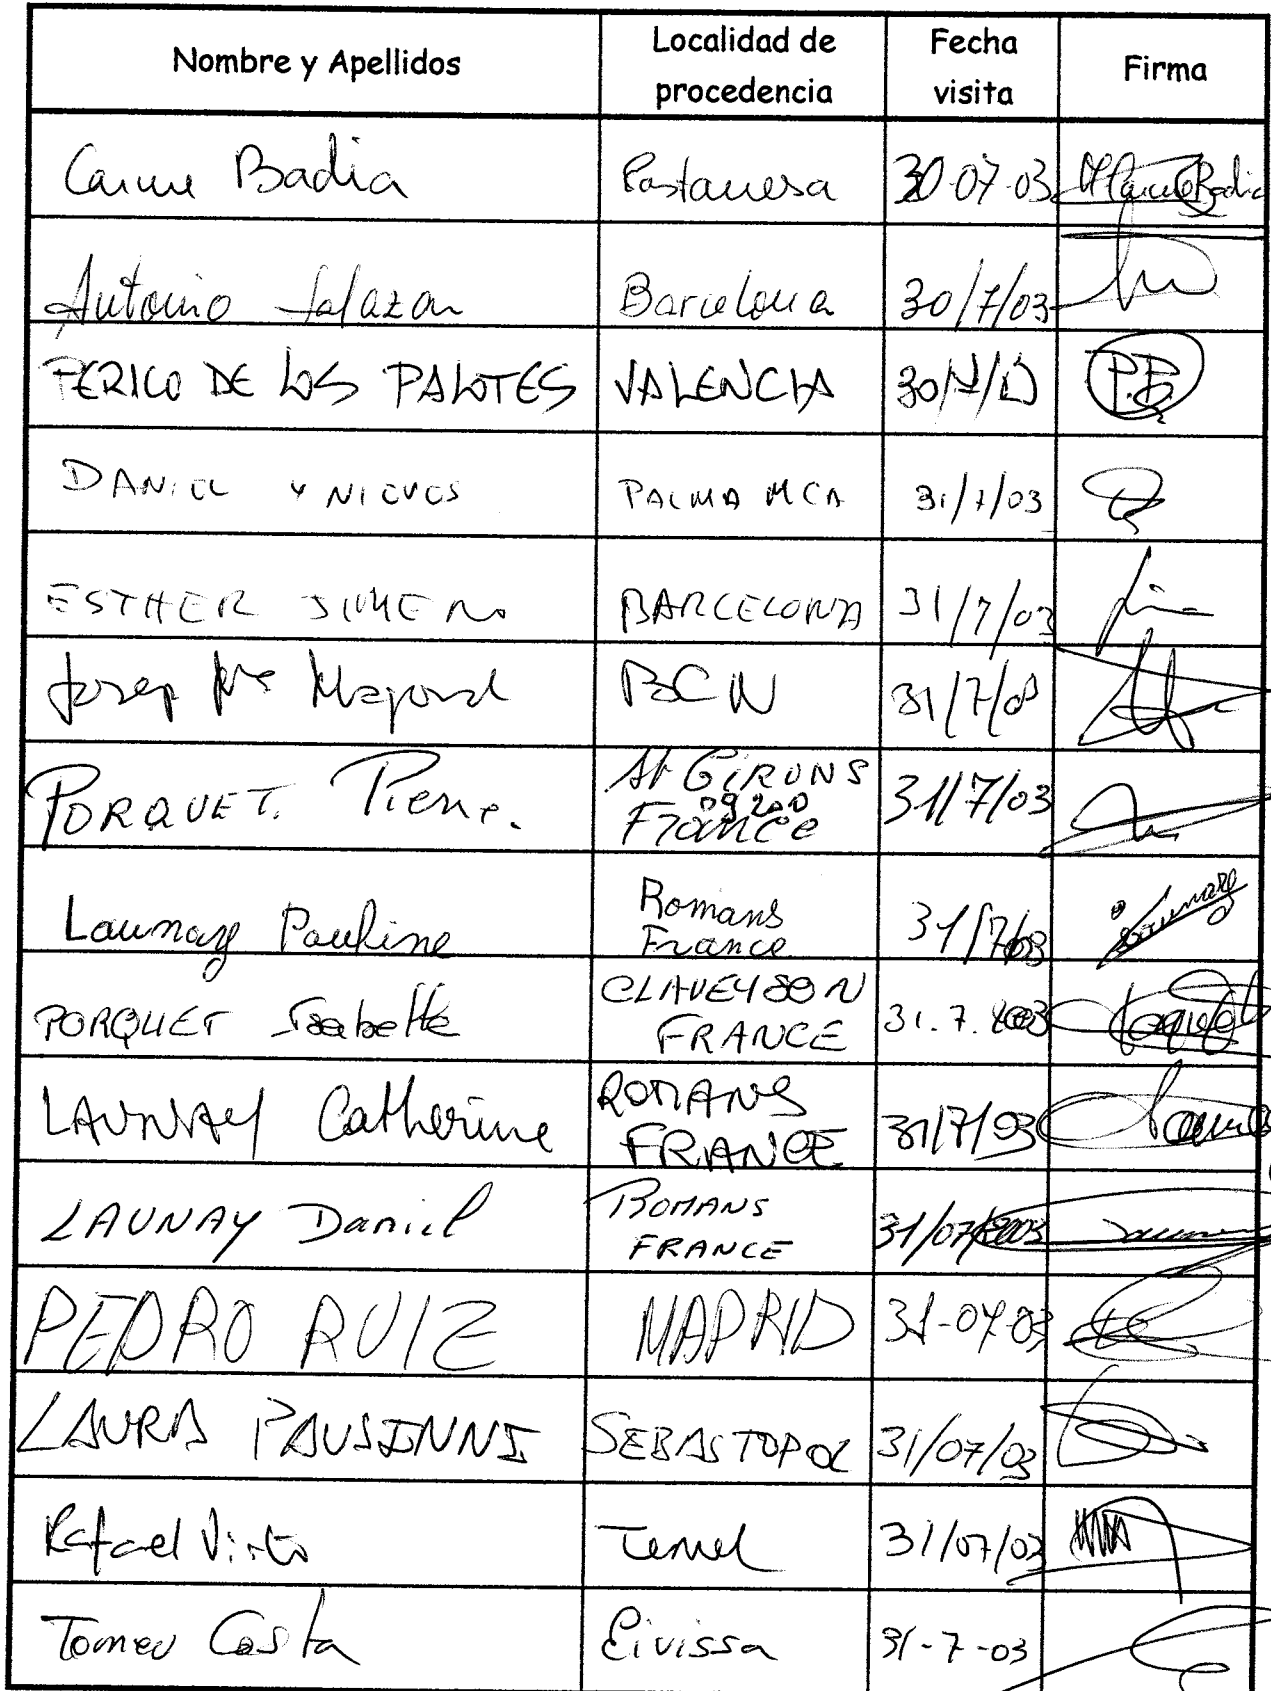 Nombre y Apellidos Localidad de procedencia Fecha visita Firma
Carme Badia Castanesa 30-07-03 Mª Carme Badia
Antonio Salazar Barcelona 30/7/03
PERICO DE LOS PALOTES VALENCIA 30/7/03 P.P.
DANIEL Y NIEVES PALMA MCA 31/7/03
ESTHER JIMENO BARCELONA 31/7/03
Josep Mª BCN 31/7/03
PORQUET. Pierre. St GIRONS 09200 France 31/7/03
Launay Pauline Romans France 31/7/03 Launay
PORQUET Isabelle CLAVEYSON FRANCE 31.7.2003 Porquet
LAUNAY Catherine ROMANS FRANCE 31/7/03 Launay
LAUNAY Daniel ROMANS FRANCE 31/07/2003
PEDRO RUIZ MADRID 31-07-03
LAURA PAUSINNI SEBASTOPOL 31/07/03
Rafael Teruel 31/07/03
Tomeu Costa Eivissa 31-7-03